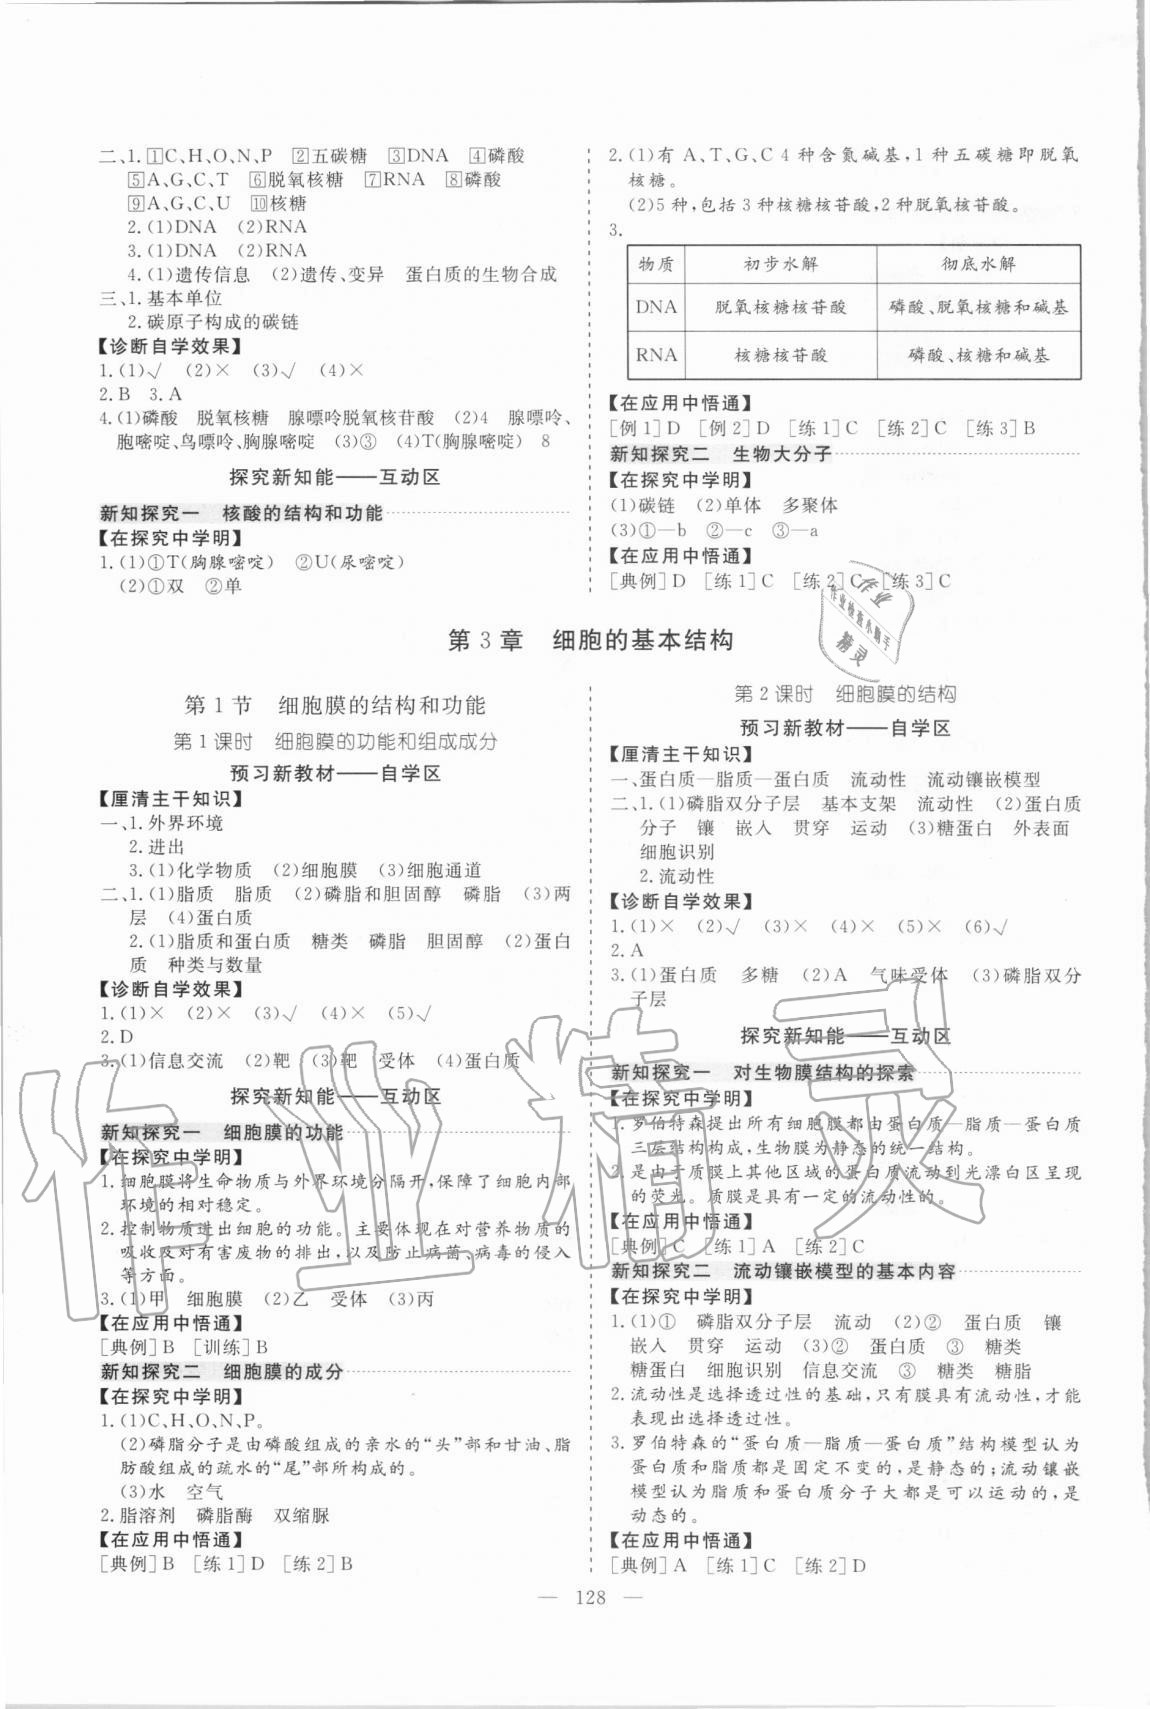 二、1.①C、H、O、N、P　②五碳糖　③DNA　④磷酸
⑤A、G、C、T　⑥脱氧核糖　⑦RNA　⑧磷酸
⑨A、G、C、U　⑩核糖
2.(1)DNA　(2)RNA
3.(1)DNA　(2)RNA
4.(1)遗传信息　(2)遗传、变异　蛋白质的生物合成
三、1.基本单位
2.碳原子构成的碳链
【诊断自学效果】
1.(1)√　(2)×　(3)√　(4)×
2.B　3.A
4.(1)磷酸　脱氧核糖　腺嘌呤脱氧核苷酸　(2)4　腺嘌呤、
胞嘧啶、鸟嘌呤、胸腺嘧啶　(3)③　(4)T(胸腺嘧啶)　8
探究新知能——互动区
新知探究一　核酸的结构和功能
【在探究中学明】
1.(1)①T(胸腺嘧啶)　②U(尿嘧啶)
(2)①双　②单
2.(1)有 A、T、G、C 4 种含氮碱基,1 种五碳糖即脱氧
核糖。
(2)5 种,包括 3 种核糖核苷酸,2 种脱氧核苷酸。
3.
物质　初步水解　彻底水解
DNA　脱氧核糖核苷酸　磷酸、脱氧核糖和碱基
RNA　核糖核苷酸　磷酸、核糖和碱基
【在应用中悟通】
[例 1]D　[例 2]D　[练 1]C　[练 2]C　[练 3]B
新知探究二　生物大分子
【在探究中学明】
(1)碳链　(2)单体　多聚体
(3)①—b　②—c　③—a
【在应用中悟通】
[典例]D　[练 1]C　[练 2]C　[练 3]C
第 3 章　细胞的基本结构
第 1 节　细胞膜的结构和功能
第 1 课时　细胞膜的功能和组成成分
预习新教材——自学区
【厘清主干知识】
一、1.外界环境
2.进出
3.(1)化学物质　(2)细胞膜　(3)细胞通道
二、1.(1)脂质　脂质　(2)磷脂和胆固醇　磷脂　(3)两
层　(4)蛋白质
2.(1)脂质和蛋白质　糖类　磷脂　胆固醇　(2)蛋白
质　种类与数量
【诊断自学效果】
1.(1)×　(2)×　(3)√　(4)×　(5)√
2.D
3.(1)信息交流　(2)靶　(3)靶　受体　(4)蛋白质
探究新知能——互动区
新知探究一　细胞膜的功能
【在探究中学明】
1.细胞膜将生命物质与外界环境分隔开,保障了细胞内部
环境的相对稳定。
2.控制物质进出细胞的功能。主要体现在对营养物质的
吸收及对有害废物的排出,以及防止病菌、病毒的侵入
等方面。
3.(1)甲　细胞膜　(2)乙　受体　(3)丙
【在应用中悟通】
[典例]B　[训练]B
新知探究二　细胞膜的成分
【在探究中学明】
1.(1)C、H、O、N、P。
(2)磷脂分子是由磷酸组成的亲水的“头”部和甘油、脂
肪酸组成的疏水的“尾”部所构成的。
(3)水　空气
2.脂溶剂　磷脂酶　双缩脲
【在应用中悟通】
[典例]B　[练 1]D　[练 2]B
第 2 课时　细胞膜的结构
预习新教材——自学区
【厘清主干知识】
一、蛋白质—脂质—蛋白质　流动性　流动镶嵌模型
二、1.(1)磷脂双分子层　基本支架　流动性　(2)蛋白质
分子　镶　嵌入　贯穿　运动　(3)糖蛋白　外表面
细胞识别
2.流动性
【诊断自学效果】
1.(1)×　(2)√　(3)×　(4)×　(5)×　(6)√
2.A
3.(1)蛋白质　多糖　(2)A　气味受体　(3)磷脂双分
子层
探究新知能——互动区
新知探究一　对生物膜结构的探索
【在探究中学明】
1.罗伯特森提出所有细胞膜都由蛋白质—脂质—蛋白质
三层结构构成,生物膜为静态的统一结构。
2.是由于质膜上其他区域的蛋白质流动到光漂白区呈现
的荧光。质膜是具有一定的流动性的。
【在应用中悟通】
[典例]C　[练 1]A　[练 2]C
新知探究二　流动镶嵌模型的基本内容
【在探究中学明】
1.(1)①　磷脂双分子层　流动　(2)②　蛋白质　镶
嵌入　贯穿　运动　(3)②　蛋白质　③　糖类
糖蛋白　细胞识别　信息交流　③　糖类　糖脂
2.流动性是选择透过性的基础,只有膜具有流动性,才能
表现出选择透过性。
3.罗伯特森的“蛋白质—脂质—蛋白质”结构模型认为
蛋白质和脂质都是固定不变的,是静态的;流动镶嵌
模型认为脂质和蛋白质分子大都是可以运动的,是
动态的。
【在应用中悟通】
[典例]A　[练 1]C　[练 2]D
— 128 —
作业精灵
作业
作业检查小助手
精灵